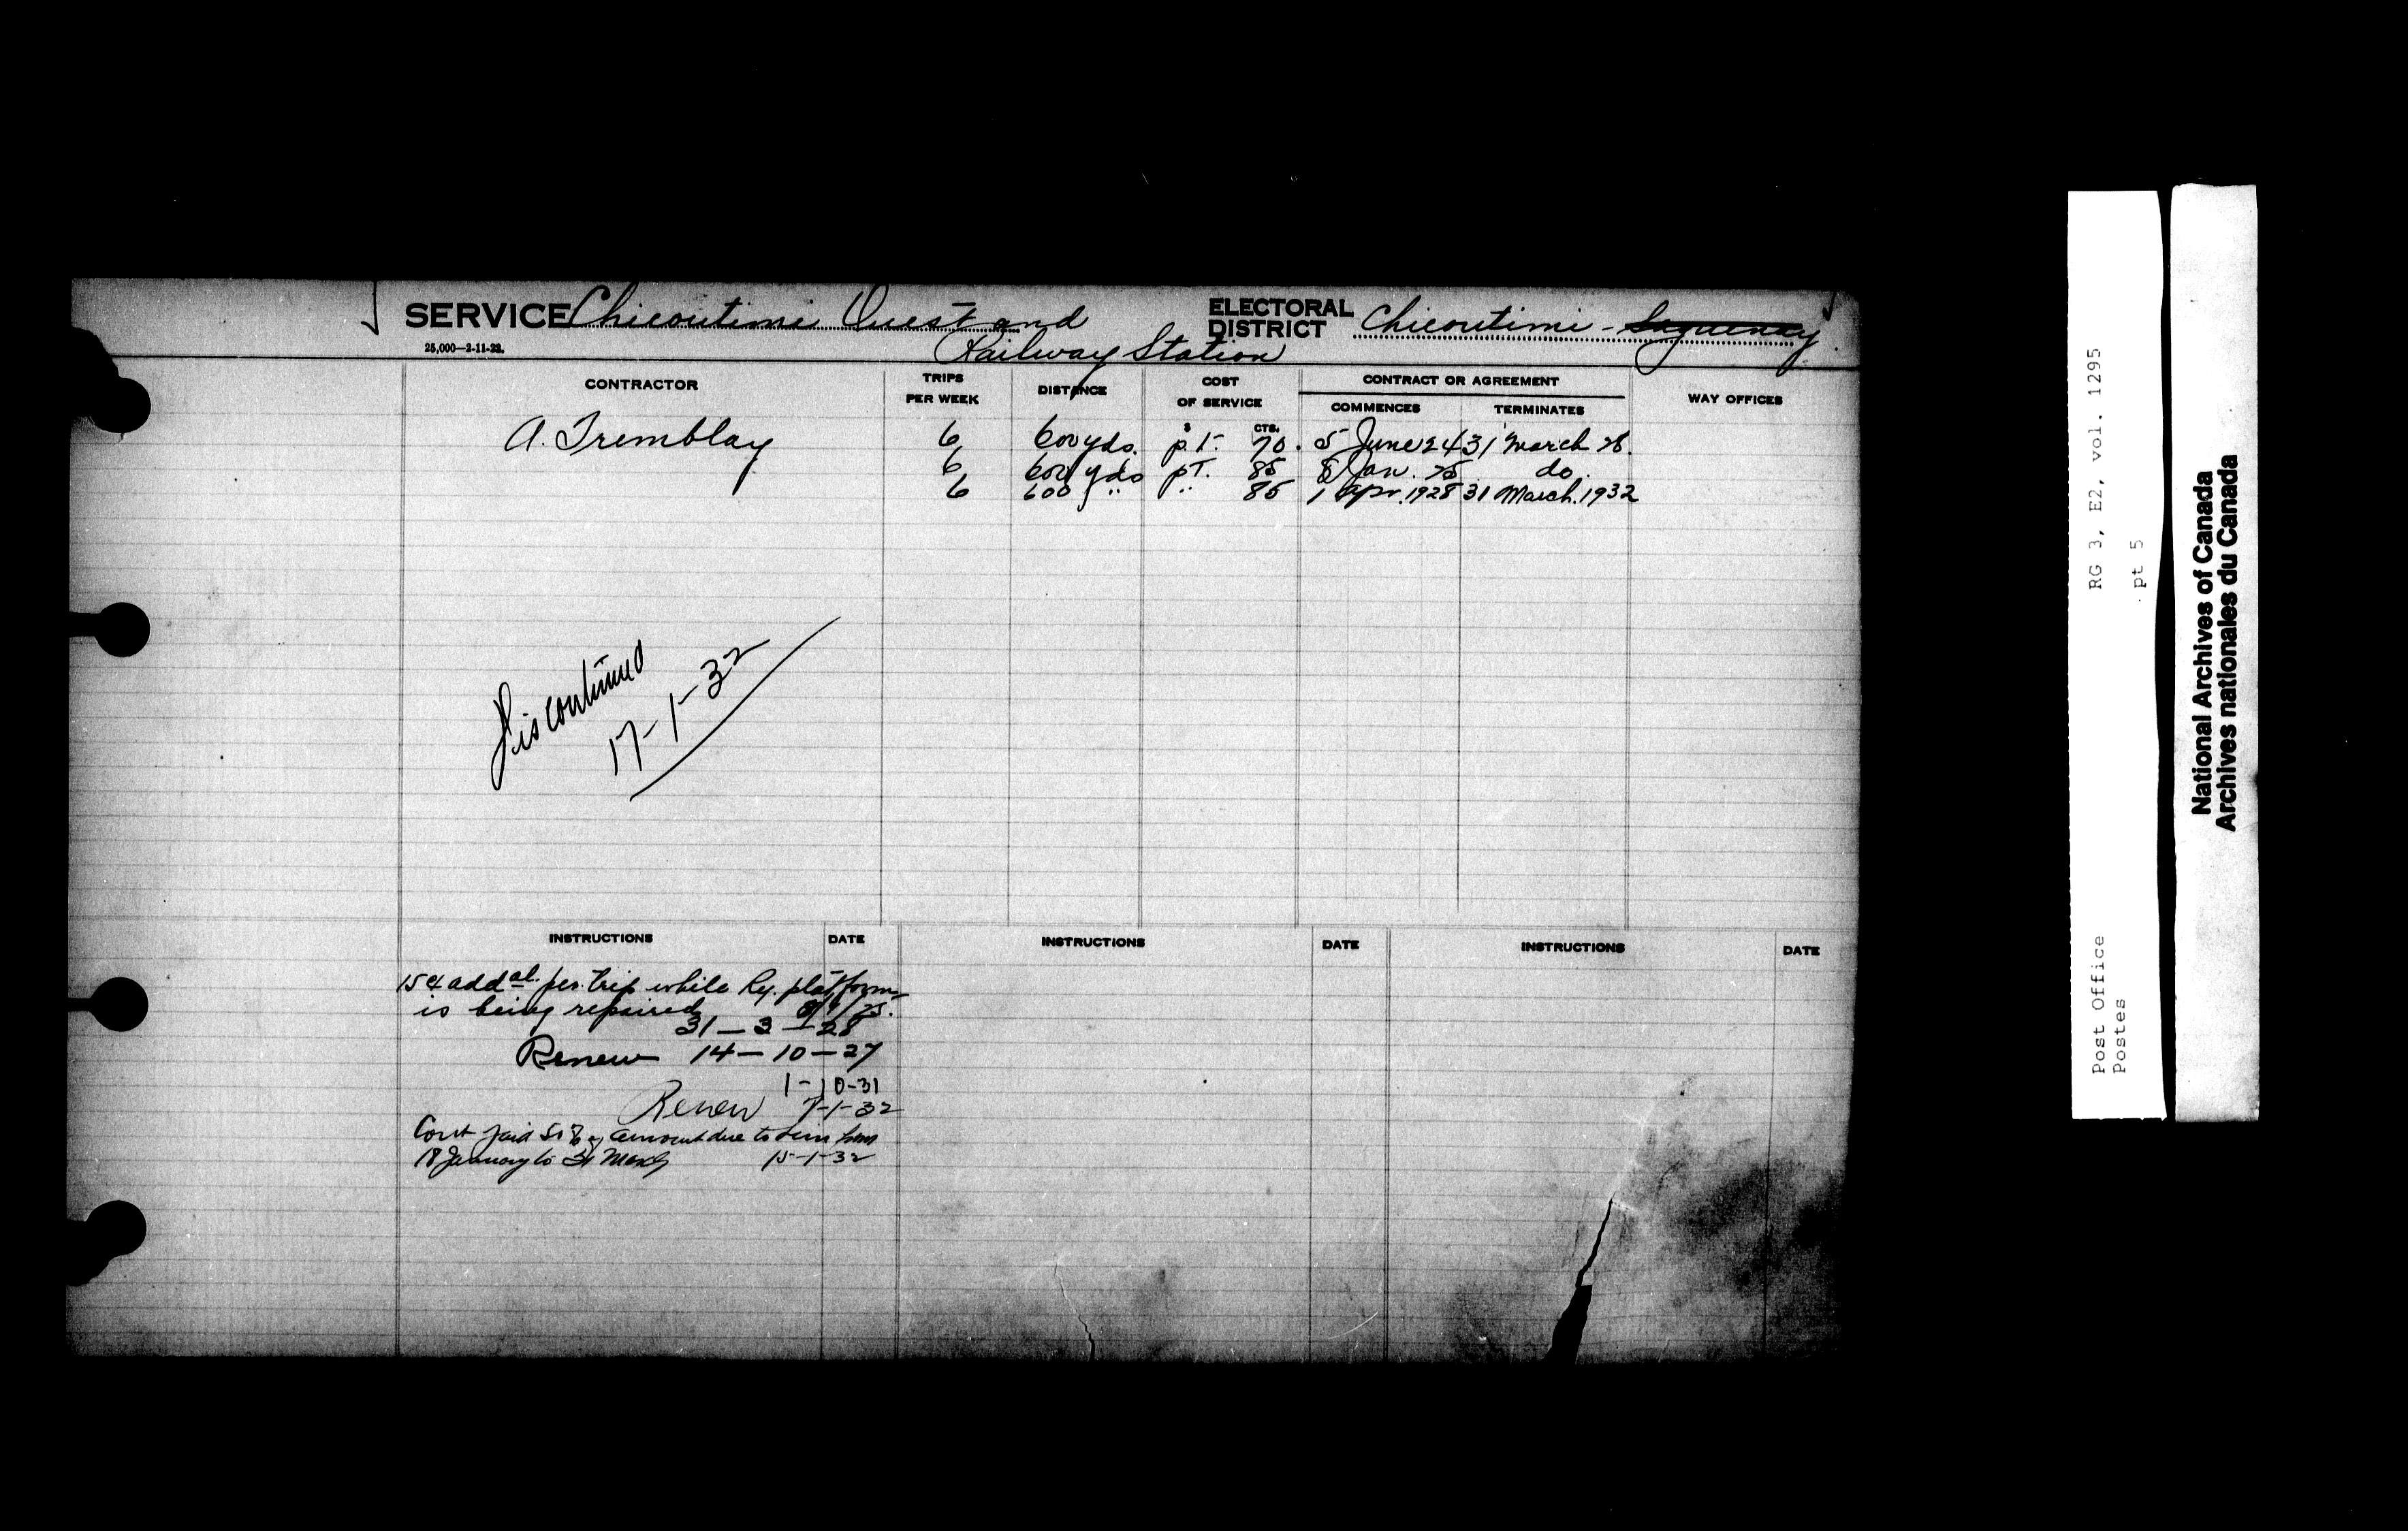 SERVICE Chicoutimi Ouest and
Railway Station
25,000—2-11-23.
ELECTORAL DISTRICT Chicoutimi - Saguenay
CONTRACTOR TRIPS PER WEEK DISTANCE COST OF SERVICE CONTRACT OR AGREEMENT WAY OFFICES
COMMENCES TERMINATES
$ CTS.
A. Tremblay 6 600 yds. p.t. 70. 5 June 24 31 March 28.
6 600 yds pt. 85 8 Jan. 25 do.
6 600 " " 85 1 Apr. 1928 31 March. 1932
Discontinued
17-1-32
INSTRUCTIONS DATE INSTRUCTIONS DATE INSTRUCTIONS DATE
15¢ addal. per trip while Ry. platform
is being repaired 8/1/25.
31-3-28
Renew 14-10-27
1-10-31
Renew 7-1-32
Cont paid 50% of amount due to him from
18 January to 31 March 15-1-32
RG 3, E2, vol. 1295
pt 5
Post Office
Postes
National Archives of Canada
Archives nationales du Canada